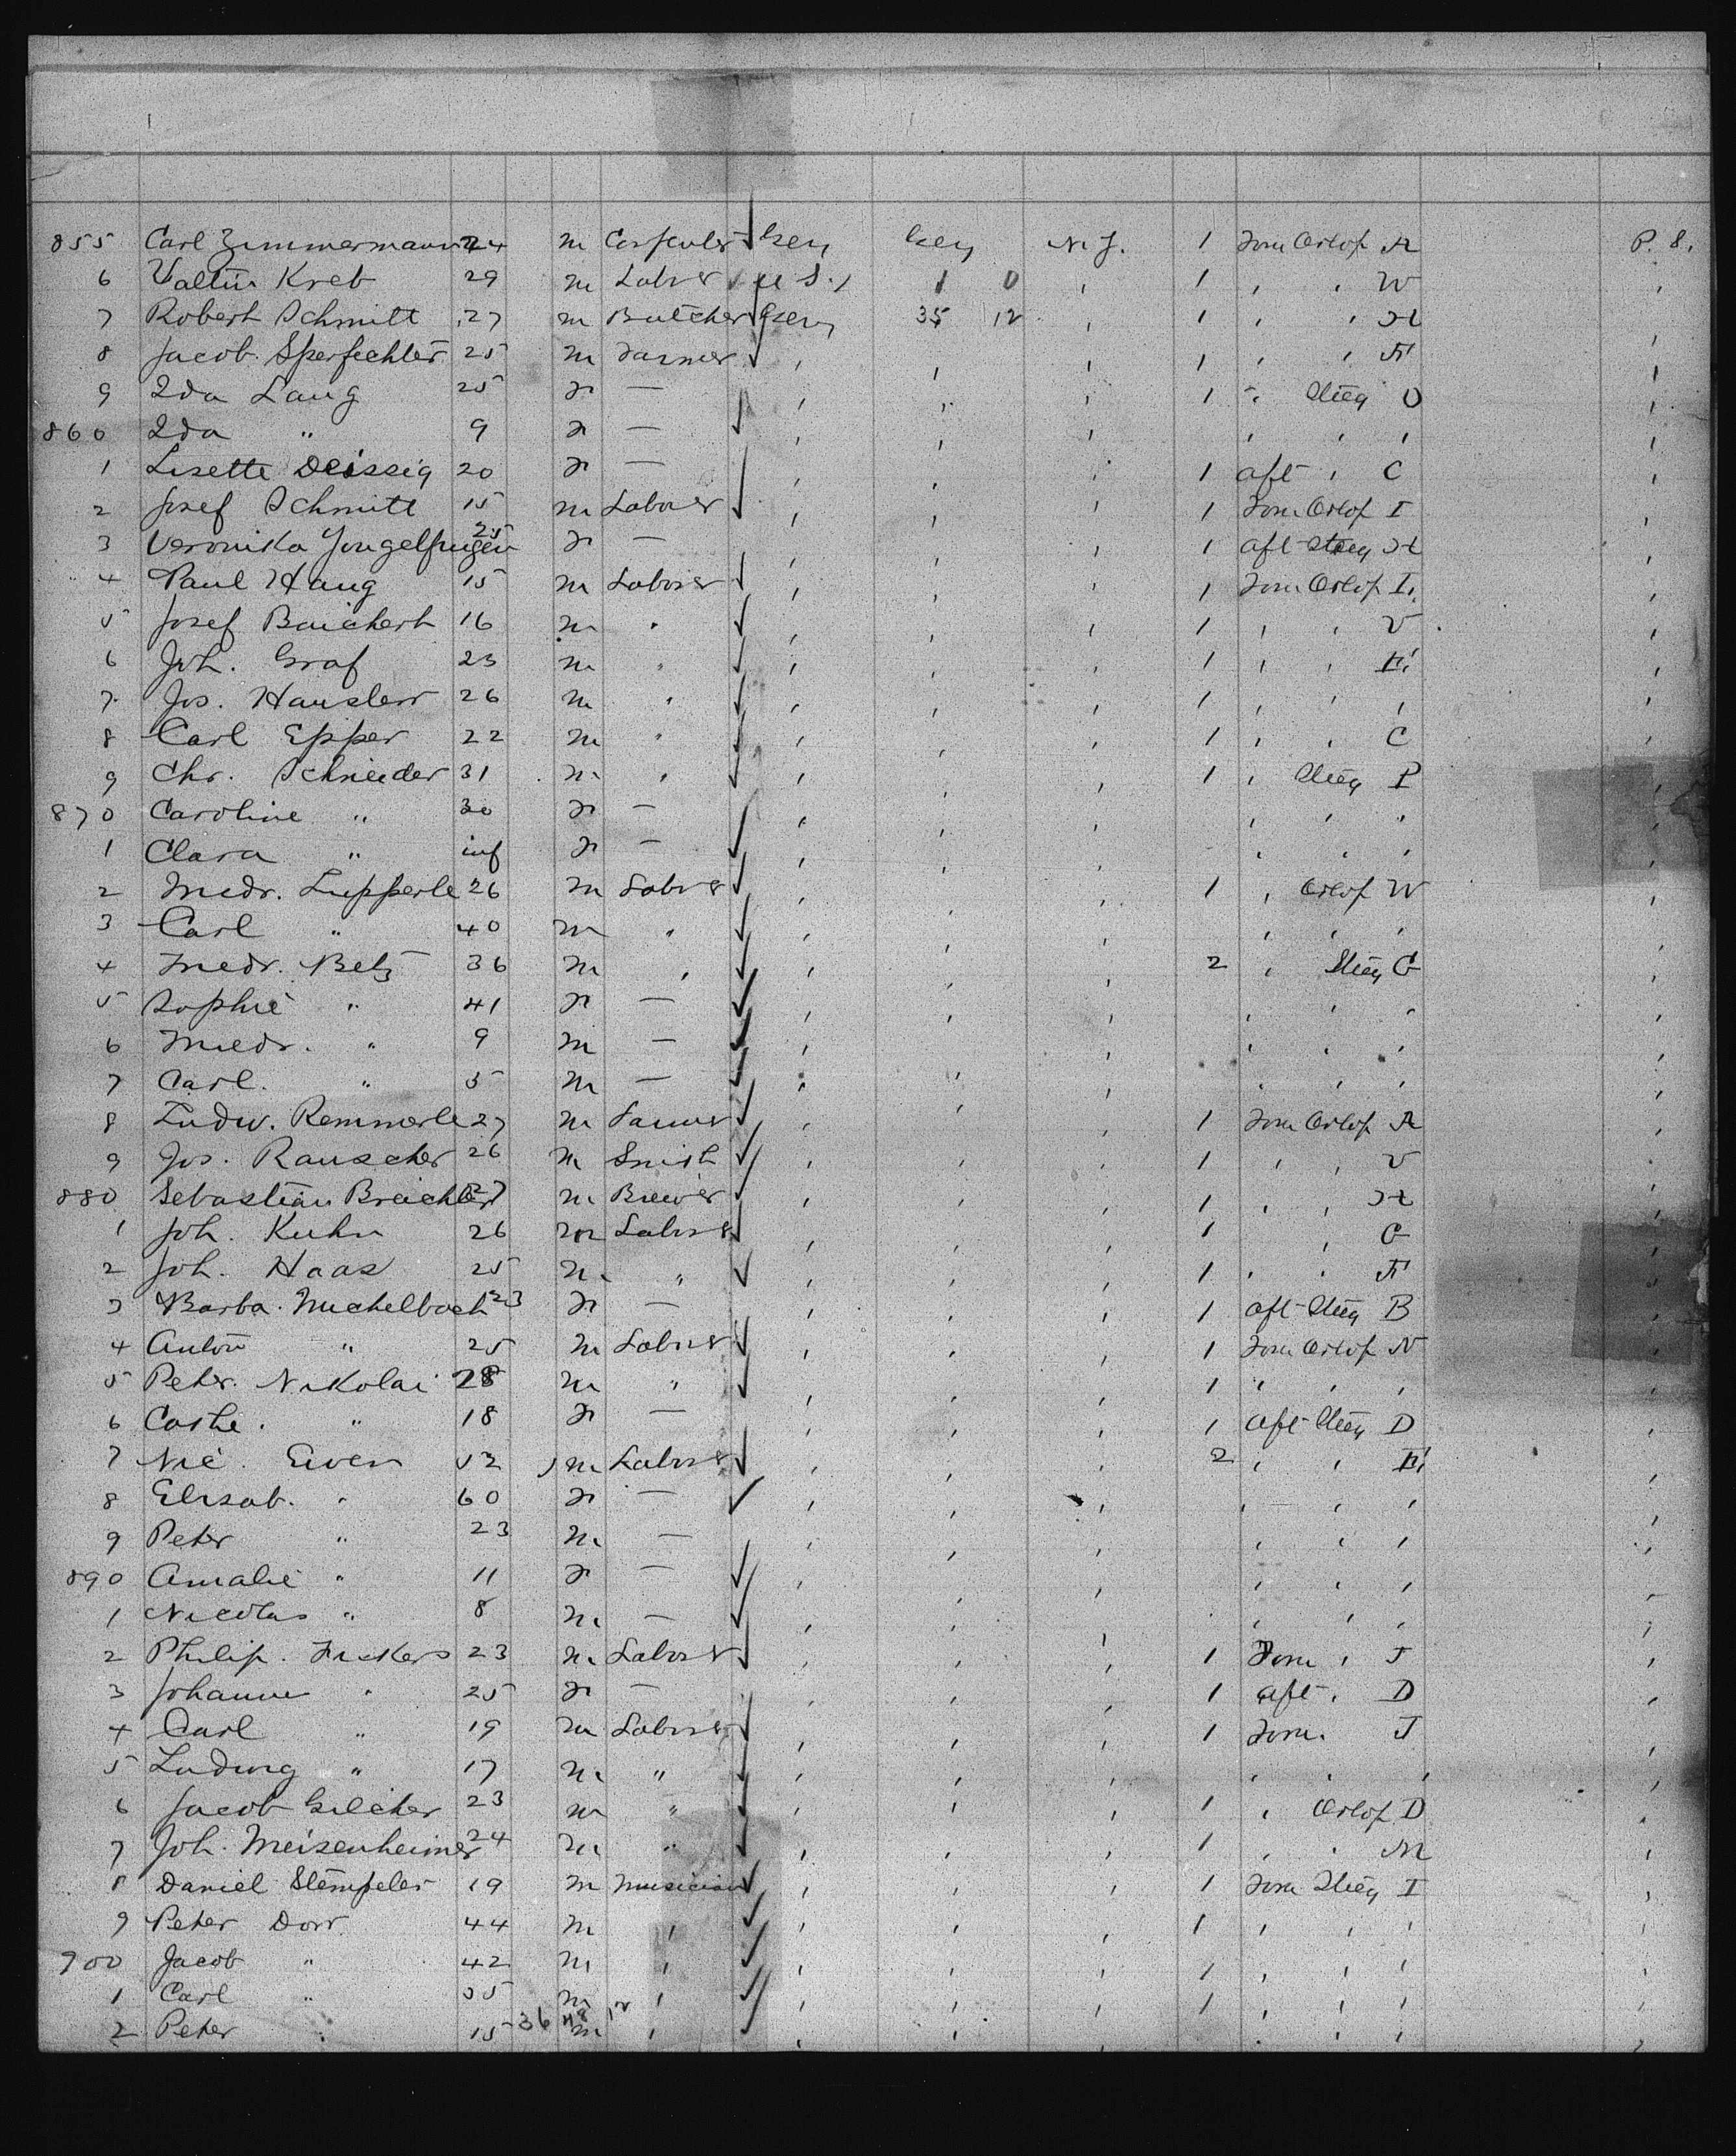 855 Carl Zimmermann 24 m Carpenter Gery Gery N.Y. 1 Form Orlop R P. 8.
6 Valtin Kreb 29 m Labrer U S. 1 0 , 1 , , W ,
7 Robert Schmitt 27 m Butcher Gery 35 12 , 1 , , H ,
8 Jacob Sperfechter 25 m Farmer , , , 1 , , F ,
9 Ida Lang 25 F — , , , 1 " Steeg O ,
860 Ida " 9 F — , , , , , , ,
1 Lisette Deissig 20 F — , , , 1 aft , C ,
2 Josef Schmitt 15 m Laborer , , , 1 Form Orlop I ,
3 Veronika 25 F — , , , 1 aft Steeg H ,
4 Paul Haug 15 m Laborer , , , 1 Form Orlop I ,
5 Josef Baichert 16 m " , , , 1 , , V ,
6 Joh. Graf 23 m " , , , 1 , , E ,
7 Jos. Hausler 26 m " , , , 1 , , , ,
8 Carl Epper 22 m " , , , 1 , , C ,
9 Chr. Schneider 31 m " , , , 1 , Steeg P ,
870 Caroline " 30 F — , , , , , " ,
1 Clara " inf F — , , , , , , ,
2 Friedr. Lupperle 26 m Labrer , , , 1 , Orlop W ,
3 Carl " 40 m " , , , , , , ,
4 Friedr. Betz 36 m , , , , 2 , Steeg G ,
5 Sophie " 41 F — , , , , , , ,
6 Friedr. " 9 m — , , , , , , ,
7 Carl. " 5 m — , , , , , , ,
8 Ludw. Remmerle 27 m Farmer , , , 1 Form Orlop R ,
9 Jos. Rauscher 26 m Smith , , , 1 , , V ,
880 Sebastian Breichler 27 m Brewer , , , 1 , , H ,
1 Joh. Kuhn 26 m Labrer , , , 1 , G ,
2 Joh. Haas 25 m " , , , 1 , , F ,
3 Barba. Michelbach 23 F — , , , 1 aft Steeg B ,
4 Anton " 25 m Labrer , , , 1 Form Orlop N ,
5 Peter. Nikolai 28 m " , , , 1 " , , ,
6 Cathe. " 18 F — , , , 1 aft Steeg D ,
7 Nic. Ewen 52 m Labrer , , , 2 , , E ,
8 Elisab. " 60 F — , , , , , , ,
9 Peter " 23 m — , , , , , , ,
890 Amalie " 11 F — , , , , , , ,
1 Nicolas " 8 m — , , , , , , ,
2 Philip. 23 m Laborer , , , 1 Form , J ,
3 Johanne " 25 F — , , , 1 aft , D ,
4 Carl " 19 m Labrer , , , 1 Form. J ,
5 Ludwig " 17 m " , , , , , , ,
6 Jacob Gilcher 23 m " , , , 1 , Orlop D ,
7 Joh. Meisenheimer 24 m " , , , 1 , , M ,
8 Daniel Stempeler 19 m Musician , , , 1 Form Steeg I ,
9 Peter Dorr 44 m , , , , 1 , , , ,
900 Jacob " 42 m , , , , 1 , , , ,
1 Carl " 35 m , , , , 1 , , , ,
2 Peter " 15 36 m , , , , , , , ,